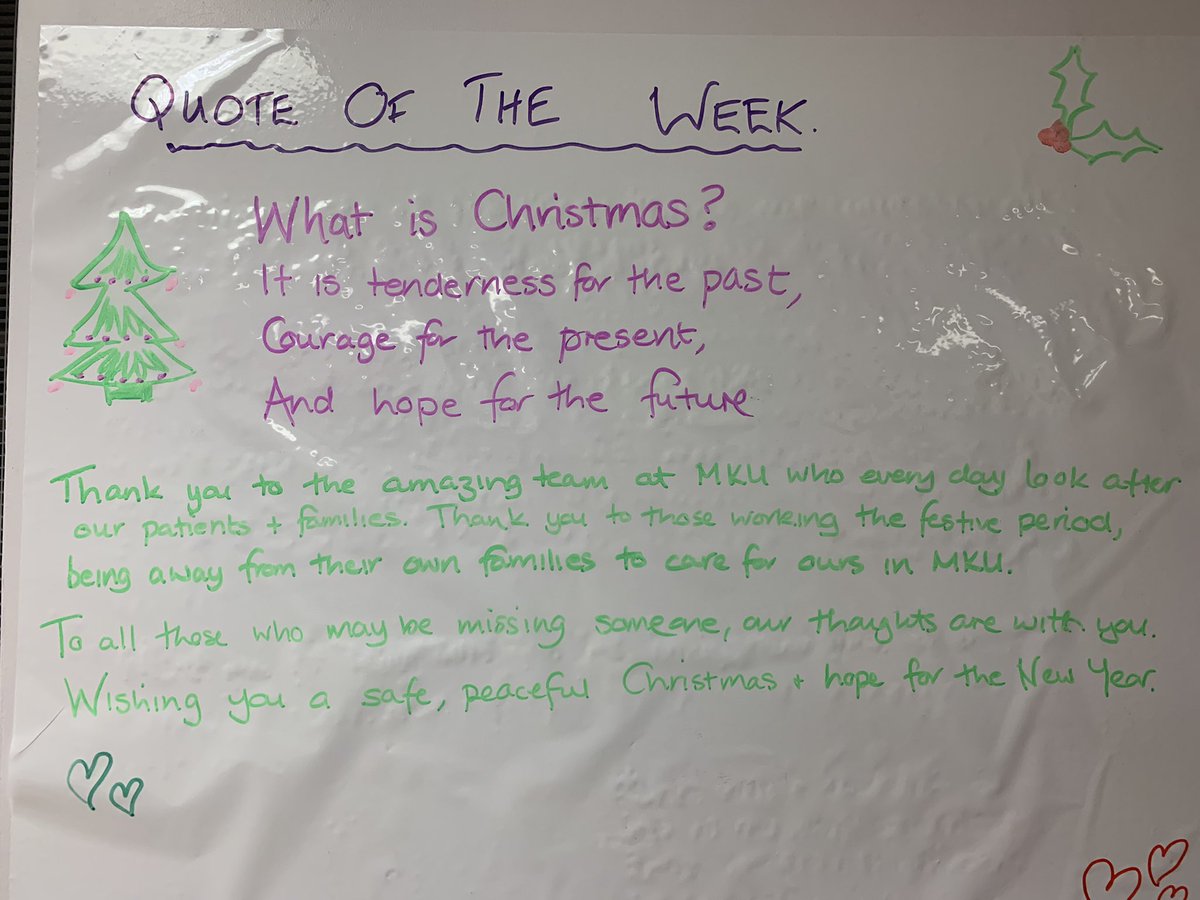 QUOTE OF THE WEEK.
What is Christmas?
It is tenderness for the past,
Courage for the present,
And hope for the future
Thank you to the amazing team at MKU who every day look after
our patients + families. Thank you to those working the festive period,
being away from their own families to care for ours in MKU.
To all those who may be missing someone, our thoughts are with you.
Wishing you a safe, peaceful Christmas + hope for the New Year.